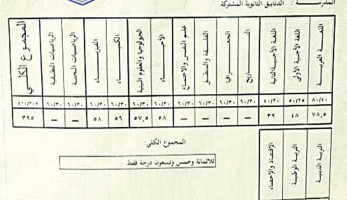 المدرسة : الدنابيق الثانوية المشتركة
اللغة العربية
اللغة الأجنبية الأولى
اللغة الأجنبية الثانية
التاريخ
الجغرافيا
الفلسفة والمنطق
علم النفس والاجتماع
الأحياء
الجيولوجيا والعلوم البيئية
الكيمياء
الفيزياء
الرياضيات البحتة
الرياضيات التطبيقية
المجموع الكلي
٨٠/٤٠ ٥٠/٢٥ ٤٠/٢٠ ٦٠/٣٠ ٦٠/٣٠ ٦٠/٣٠ ٦٠/٣٠ ٦٠/٣٠ ٦٠/٣٠ ٦٠/٣٠ ٦٠/٣٠ ٦٠/٣٠ ٦٠/٣٠ ٤١٠/٢٠٥
٧٨,٥ ٤٨ ٣٩ — — — — ٥٨ ٥٧,٥ ٥٦ ٥٨ — — ٣٩٥
المجموع الكلي:
ثلاثمائة وخمس وتسعون درجة فقط
التربية الدينية
التربية الوطنية
الإقتصاد والإحصاء